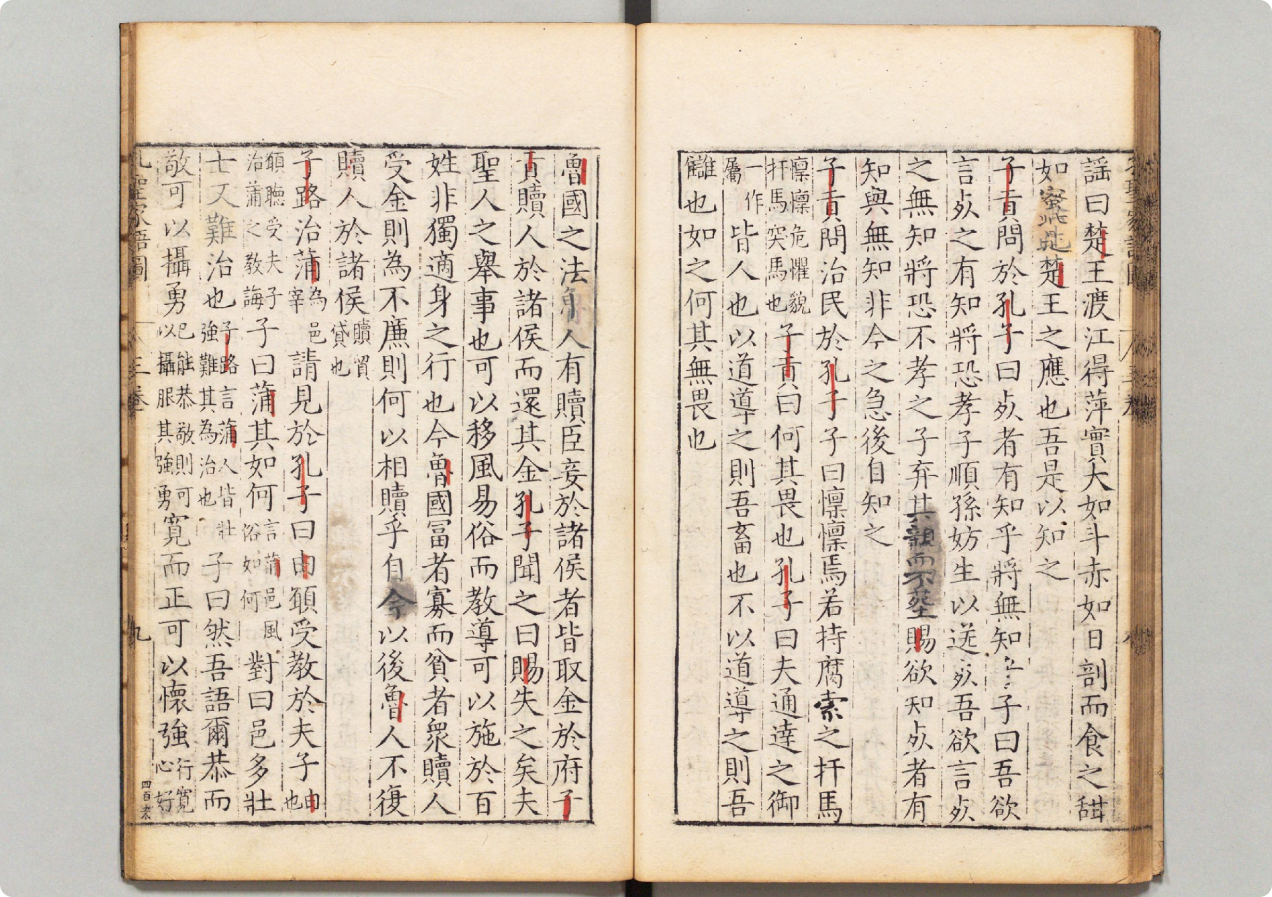 謡曰楚王渡江得萍實大如斗赤如日剖而食之甜
如蜜此是楚王之應也吾是以知之
子貢問於孔子曰歿者有知乎將無知乎子曰吾欲
言歿之有知將恐孝子順孫妨生以送歿吾欲言歿
之無知將恐不孝之子弃其親而不葬賜欲知歿者有
知與無知非今之急後自知之
子貢問治民於孔子子曰懍懍焉若持腐索之扞馬
懍懍危懼貌扞馬突馬也子貢曰何其畏也孔子曰夫通達之御
一作屬皆人也以道導之則吾畜也不以道導之則吾
讎也如之何其無畏也
魯國之法魯人有贖臣妾於諸侯者皆取金於府子
貢贖人於諸侯而還其金孔子聞之曰賜失之矣夫
聖人之舉事也可以移風易俗而教導可以施於百
姓非獨適身之行也今魯國冨者寡而貧者衆贖人
受金則為不廉則何以相贖乎自今以後魯人不復
贖人於諸侯贖貿貸也
子路治蒲為邑宰請見於孔子曰由願受教於夫子由也
願聽受夫子治蒲之教誨子曰蒲其如何言蒲邑風俗如何對曰邑多壯
士又難治也子路言蒲人皆壯強難其為治也子曰然吾語爾恭而
敬可以攝勇己能恭敬則可以攝服其強勇寬而正可以懷強行寬心好
三卷
九